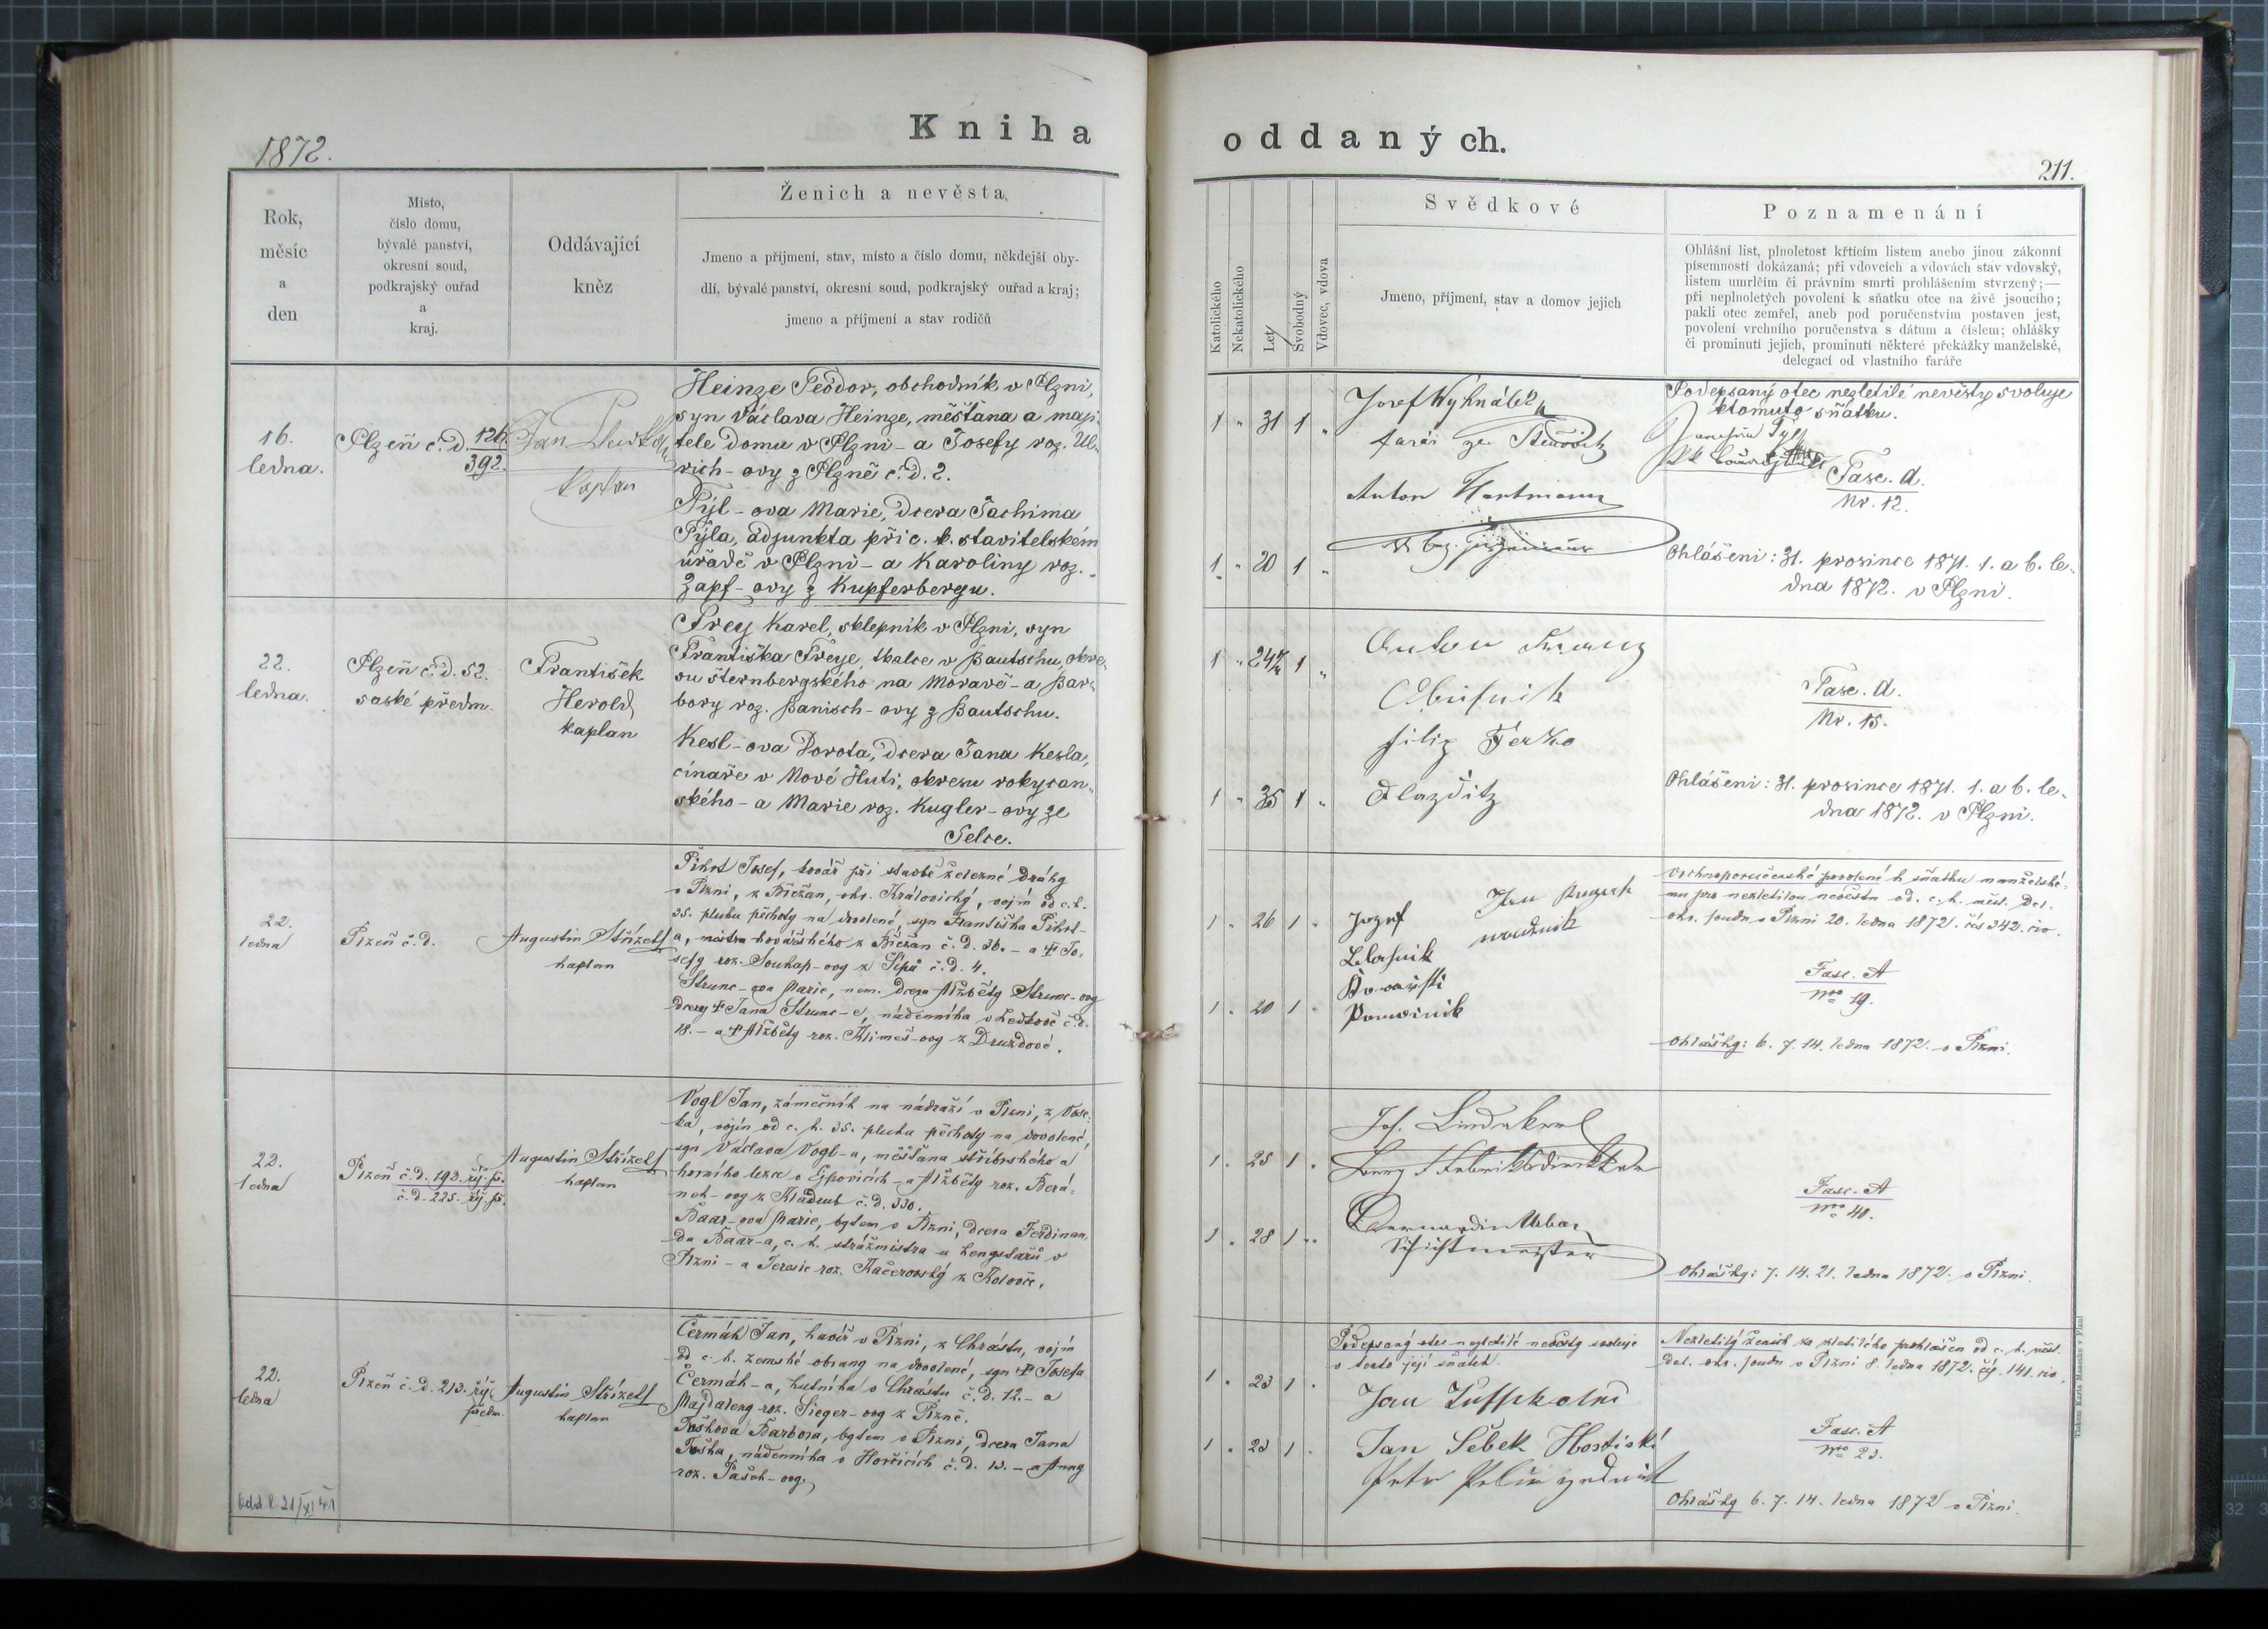 1872.
Kniha
oddaných.
211.
Rok,
měsíc
a
den
Místo,
číslo domu,
bývalé panství,
okresní soud,
podkrajský ouřad
a
kraj.
Oddávající
kněz
Ženich a nevěsta.
Jmeno a příjmení, stav, místo a číslo domu, někdejší oby-
dlí, bývalé panství, okresní soud, podkrajský ouřad a kraj;
jmeno a příjmení a stav rodičů
Katolického
Nekatolického
Let
Svobodný
Vdovec, vdova
Svědkové
Jmeno, příjmení, stav a domov jejich
Poznamenání
Ohlášní list, plnoletost křticím listem anebo jinou zákonní
písemností dokázaná; při vdovcích a vdovách stav vdovský,
listem umrlčím či právním smrti prohlášením stvrzený;—
při neplnoletých povolení k sňatku otce na živě jsoucího;
pakli otec zemřel, aneb pod poručenstvím postaven jest,
povolení vrchního poručenstva s dátum a číslem; ohlášky
či prominutí jejich, prominutí některé překážky manželské,
delegací od vlastního faráře
16.
ledna.
Plzeň č. d. 126.
392.
Jan
kaplan
Heinze Teodor, obchodník v Plzni,
syn Václava Heinze, měšťana a maji-
tele domu v Plzni - a Josefy roz. Ul-
rich-ovy z Plzně č. d. 2.
Pýl-ova Marie, dcera Jachima
Pýla, adjunkta při c. k. stavitelském
úřadě v Plzni - a Karoliny roz.
Zapf-ovy z Kupferbergu.
1 " 31 1 "
1 " 20 1 "
Josef Wyhnálek
farář ze
Anton Hartmann
Podepsaný otec nezletilé nevěsty svoluje
k tomuto sňatku.
Fasc. d.
Nr. 12.
Ohlášení: 31. prosince 1871. 1. a 6. le-
dna 1872. v Plzni.
22.
ledna.
Plzeň č. d. 52.
saské předm.
František
Herold
kaplan
Frey Karel, sklepník v Plzni, syn
Františka Freye, tkalce v Bautschu, okre-
su šternbergského na Moravě - a Bar-
bory roz. Banisch-ovy z Bautschu.
Kesl-ova Dorota, dcera Jana Kesla,
cínaře v Nové Huti, okresu rokycan-
ského - a Marie roz. Kugler-ovy ze
Selce.
1 " 24 1 "
1 " 35 1 "
Anton
Ferko
Fasc. d.
Nr. 15.
Ohlášení: 31. prosince 1871. 1. a 6. le-
dna 1872. v Plzni.
22.
ledna
Plzeň č. d.
Augustin Střízek
kaplan
Pihrt Josef, kovář při stavbě železné dráhy
v Plzni, z Břežan, okr. Královický, vojín od c. k.
35. pluku pěchoty na dovolené, syn Františka Pihrt-
a, mistra kovářského z Břežan č. d. 36. - a † Jo-
sefy roz. Souhap-ovy z č. d. 4.
Strunc-ova Marie, nem. dcera Alžběty Strunc-ovy
dcery † Jana Strunc-e, nádenníka v Ledkově č. d.
18. - a † Alžběty roz. Klimeš-ovy z Druzdové.
1 . 26 1 .
1 . 20 1 .
Jozef
Jan
Pomocnik
Vrchnoporučenské povolení k sňatku manželské-
mu pro nezletilou nevěstu od. c. k. měst. del.
okr. soudu v Plzni 20. ledna 1872. čís 342. civ.
Fasc. A
Nro 19.
Ohlášky: 6. 7. 14. ledna 1872. v Plzni.
22.
ledna
Plzeň č. d. 192. říj. př.
č. d. 225. říj. př.
Augustin Střízek
kaplan
Vogl Jan, zámečník na nádraží v Plzni, z Vose-
ka, vojín od c. k. 35. pluku pěchoty na dovolené,
syn Václava Vogl-a, měšťana stříbrského a
horního lezce v Ejpovicích - a Alžběty roz. Berá-
nek-ovy z Kladrub č. d. 330.
Baar-ova Marie, bytem v Plzni, dcera Ferdinan-
da Baar-a, c. k. strážmistra u hengstařů v
Plzni - a Teresie roz. Kačerovský z Kolovče.
1 . 25 1 .
1 . 28 1 .
Jos.
Bernardin Urban
Schichtmeister
Fasc. A
Nro 40.
Ohlášky: 7. 14. 21. ledna 1872. v Plzni.
22.
ledna
Plzeň č. d. 213. říj.
předm.
Augustin Střízek
kaplan
Čermák Jan, havíř v Plzni, z Chrástu, vojín
od c. k. zemské obrany na dovolené, syn † Josefa
Čermák-a, hutníka v Chrástu č. d. 12. - a
Majdaleny roz. Sieger-ovy z Plzně.
Toškova Barbora, bytem v Plzni, dcera Jana
Toška, nádenníka v Hořicích č. d. 13. - a Anny
roz. Pašek-ovy.
1 . 23 1 .
1 . 23 1 .
Podepsaný otec nezletilé nevěsty svoluje
v tento její sňatek.
Jan
Jan Šebek
Petr
Nezletilý ženich za zletilého prohlášen od c. k. měst.
del. okr. soudu v Plzni 8. ledna 1872. čís. 141. civ.
Fasc. A
Nro 23.
Ohlášky 6. 7. 14. ledna 1872 v Plzni.
Tiskem Karla Maasche v Plzni